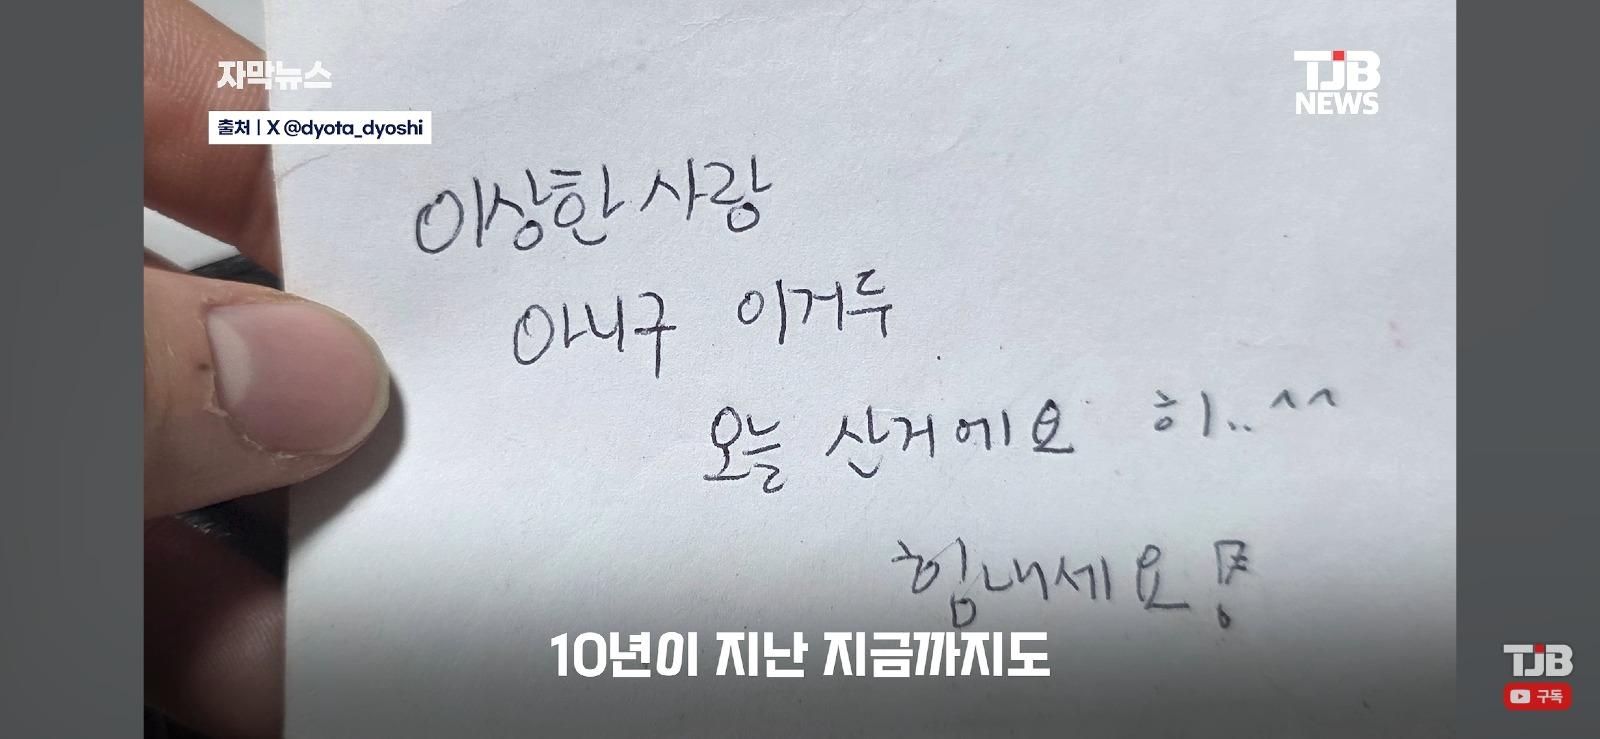 자막뉴스
TJB
NEWS
출처 | X @dyota_dyoshi
이상한 사랑
아니구 이거두
오늘 산거에요 히..^^
힘내세요!
10년이 지난 지금까지도
TJB
구독